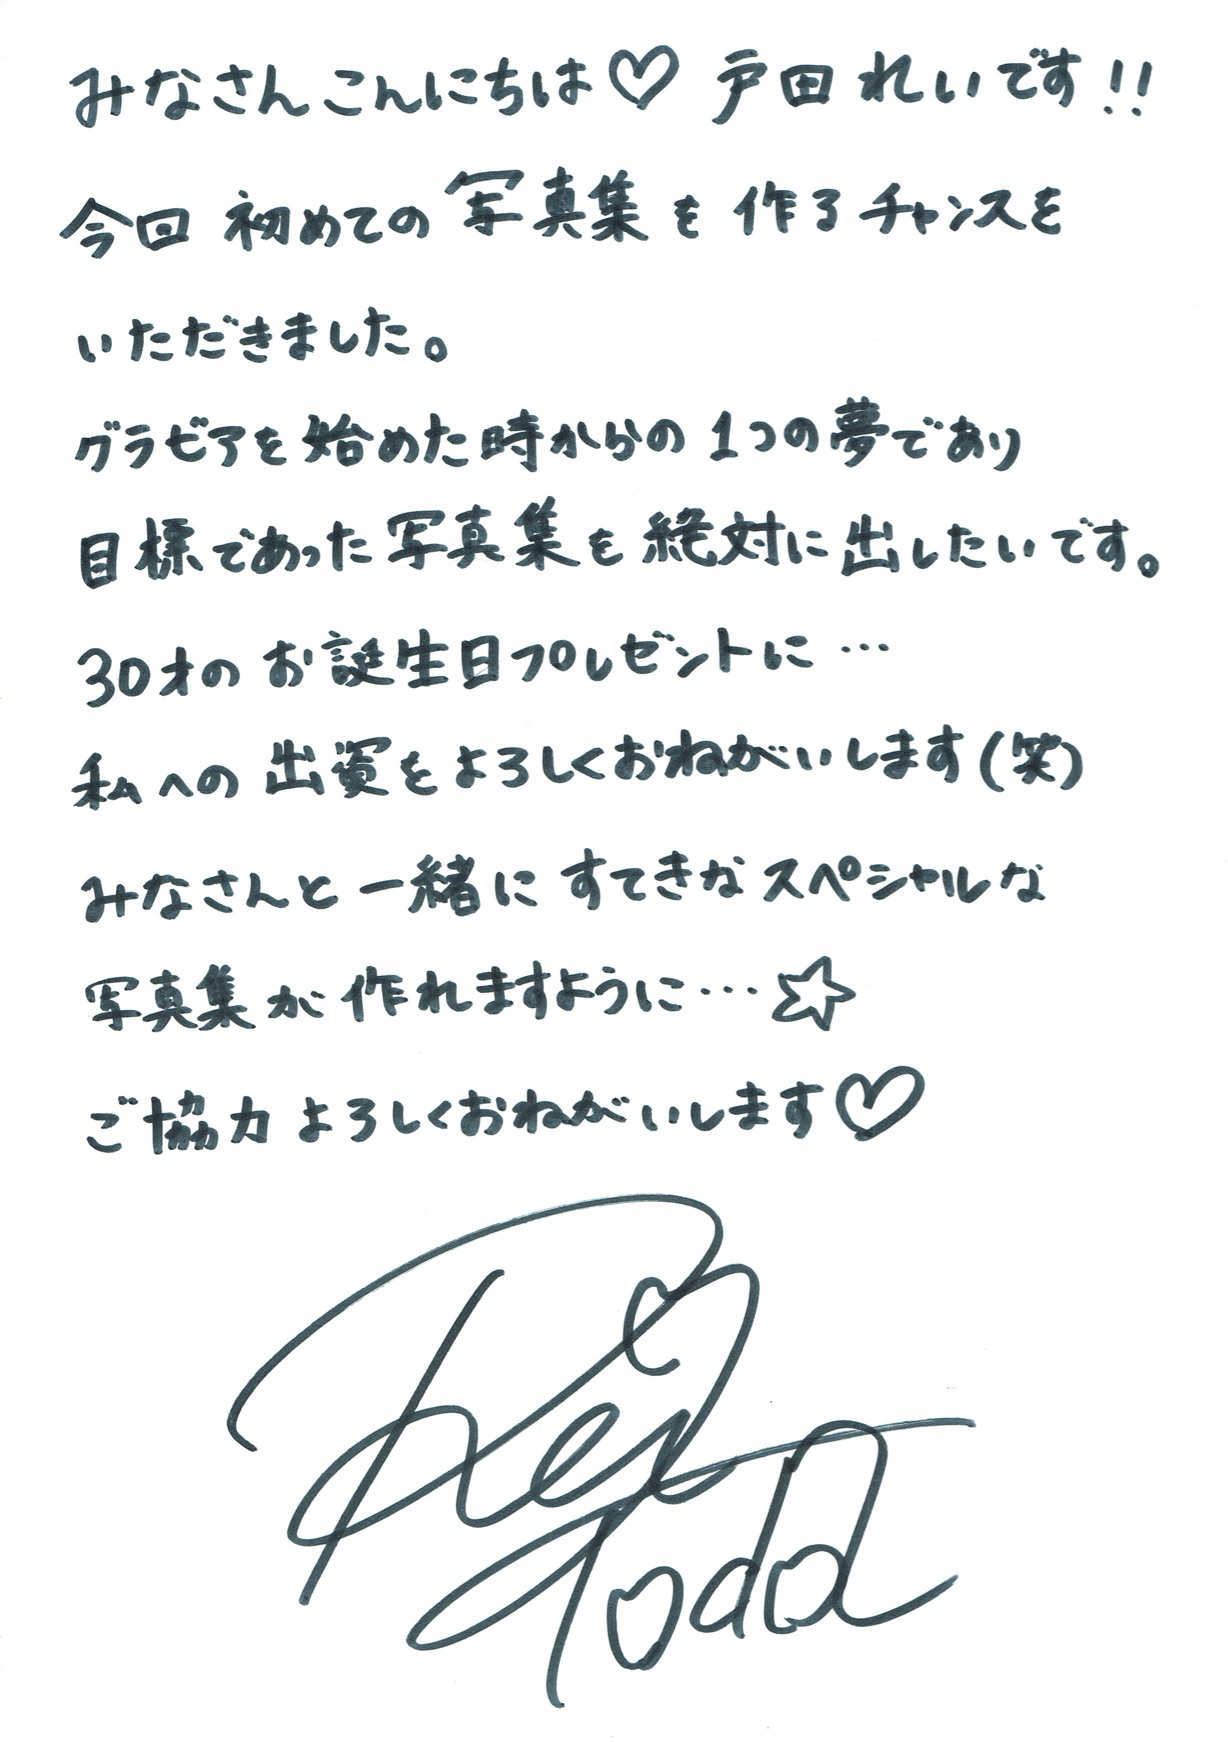 みなさんこんにちは♡ 戸田れいです!!
今回 初めての 写真集を 作るチャンスを
いただきました。
グラビアを始めた時からの 1つの夢であり
目標であった写真集を絶対に出したいです。
30才の お誕生日プレゼントに…
私への 出資をよろしくおねがいします(笑)
みなさんと一緒に すてきなスペシャルな
写真集が 作れますように…☆
ご協力よろしくおねがいします♡
Rei
Toda